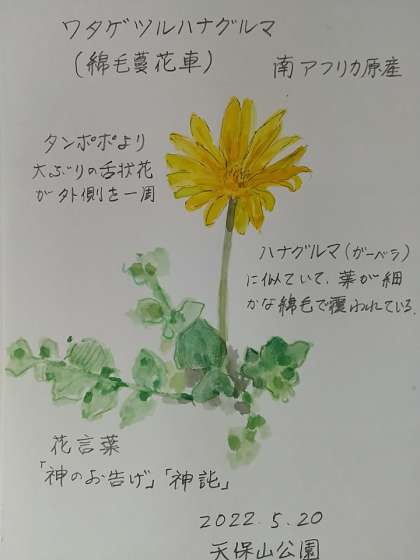 ワタゲツルハナグルマ
(綿毛蔓花車)
南アフリカ原産
タンポポより
大ぶりの舌状花
が外側を一周
ハナグルマ(ガーベラ)
に似ていて、葉が細
かな綿毛で覆われている.
花言葉
「神のお告げ」「神託」
2022.5.20
天保山公園